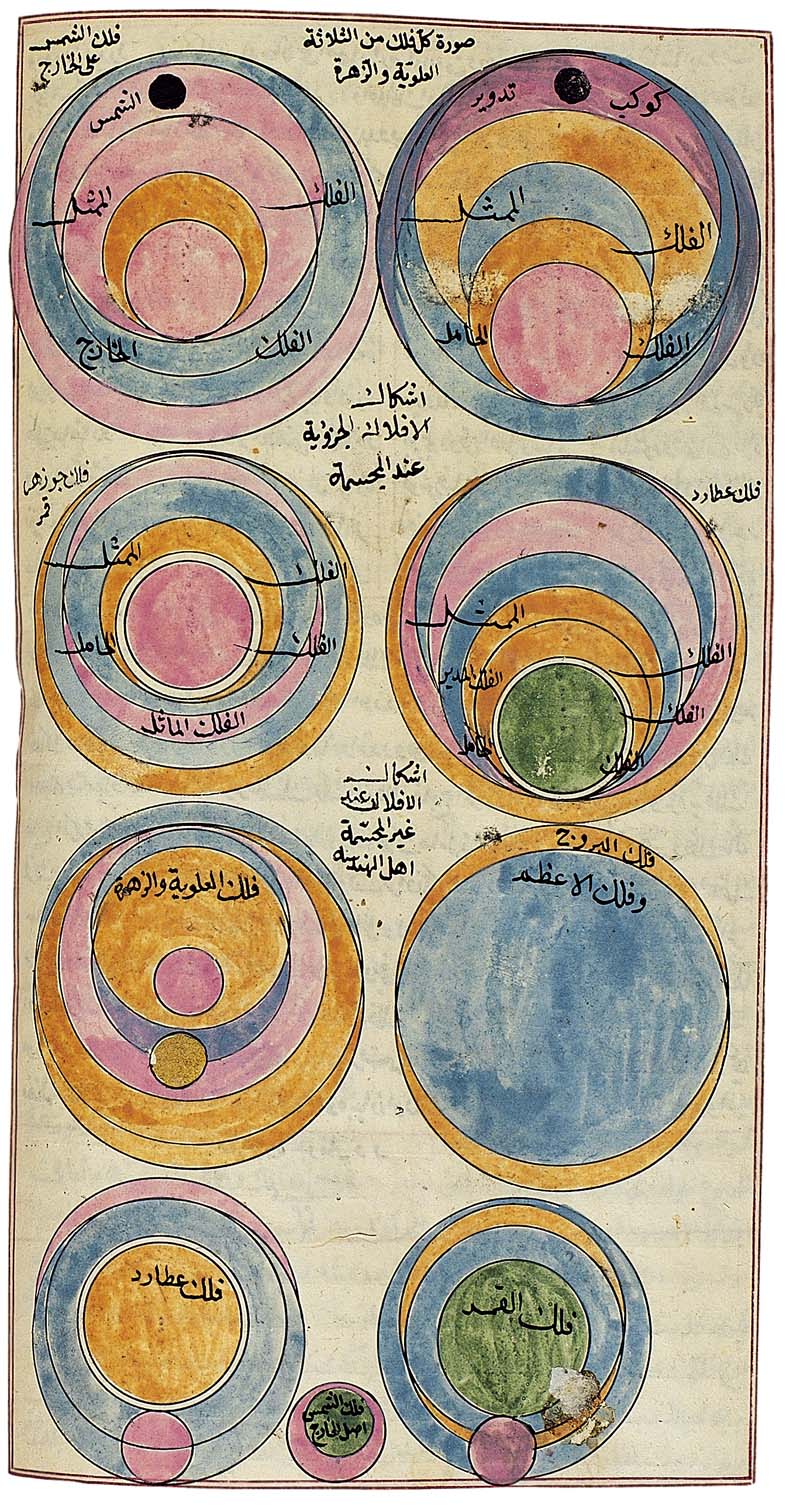 صورة كل فلك من الثلاثة
العلوية والزهرة
كوكب
تدوير
الممثل
الفلك
الحامل
الفلك
فلك الشمس
على الخارج
الشمس
الممثل
الفلك
الخارج
الفلك
اشكال
الافلاك الجزؤية
عند المجسمة
فلك عطارد
الممثل
الفلك
الفلك المدير
الفلك
الحامل
الفلك
فلك جوزهر
قمر
الممثل
الفلك
الحامل
الفلك
الفلك المائل
اشكال
الافلاك عند
غير المجسمة
اهل الهندسة
فلك البروج
وفلك الاعظم
فلك العلوية والزهرة
فلك القمر
فلك عطارد
فلك الشمس
اصل الخارج